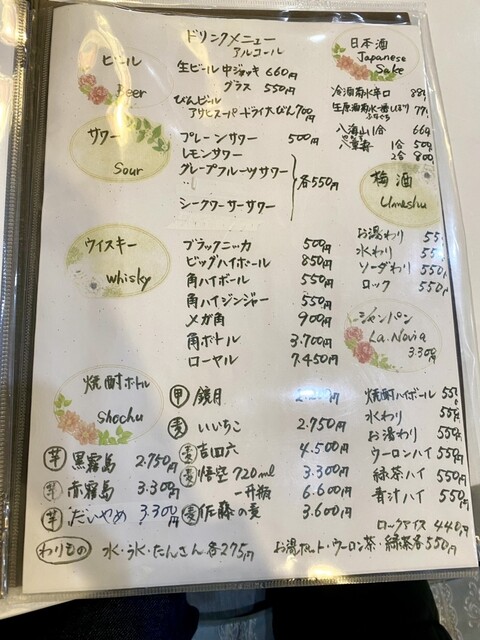 ドリンクメニュー
アルコール
ビール
Beer
生ビール中ジョッキ 660円
グラス 550円
びんビール
アサヒスーパードライ大びん 700円
サワー
Sour
プレーンサワー 500円
レモンサワー
グレープフルーツサワー
シークワーサーサワー
各550円
ウイスキー
Whisky
ブラックニッカ 500円
ビッグハイボール 850円
角ハイボール 550円
角ハイジンジャー 550円
メガ角 900円
角ボトル 3.700円
ローヤル 7.450円
日本酒
Japanese
Sake
冷酒菊水辛口
生原酒菊水一番しぼり
ふなぐち
八海山1合
1合
2合 800
梅酒
Umeshu
お湯わり
水わり
ソーダわり 550
ロック 550円
シャンパン
La.Novia
3.300円
焼酎ボトル
Shochu
甲 鏡月
麦 いいちこ 2.750円
麦 吉四六 4.500円
麦 悟空 720ml 3.300円
一升瓶 6.600円
麦 佐藤の麦 3.600円
芋 黒霧島 2.750円
芋 赤霧島 3.300円
芋 だいやめ 3.300円
焼酎ハイボール 550
水わり 550
お湯わり 550
ウーロンハイ 550円
緑茶ハイ 550円
青汁ハイ 550円
ロックアイス 440円
わりもの 水・氷・たんさん 各275円
お湯ポット・ウーロン茶・緑茶各550円